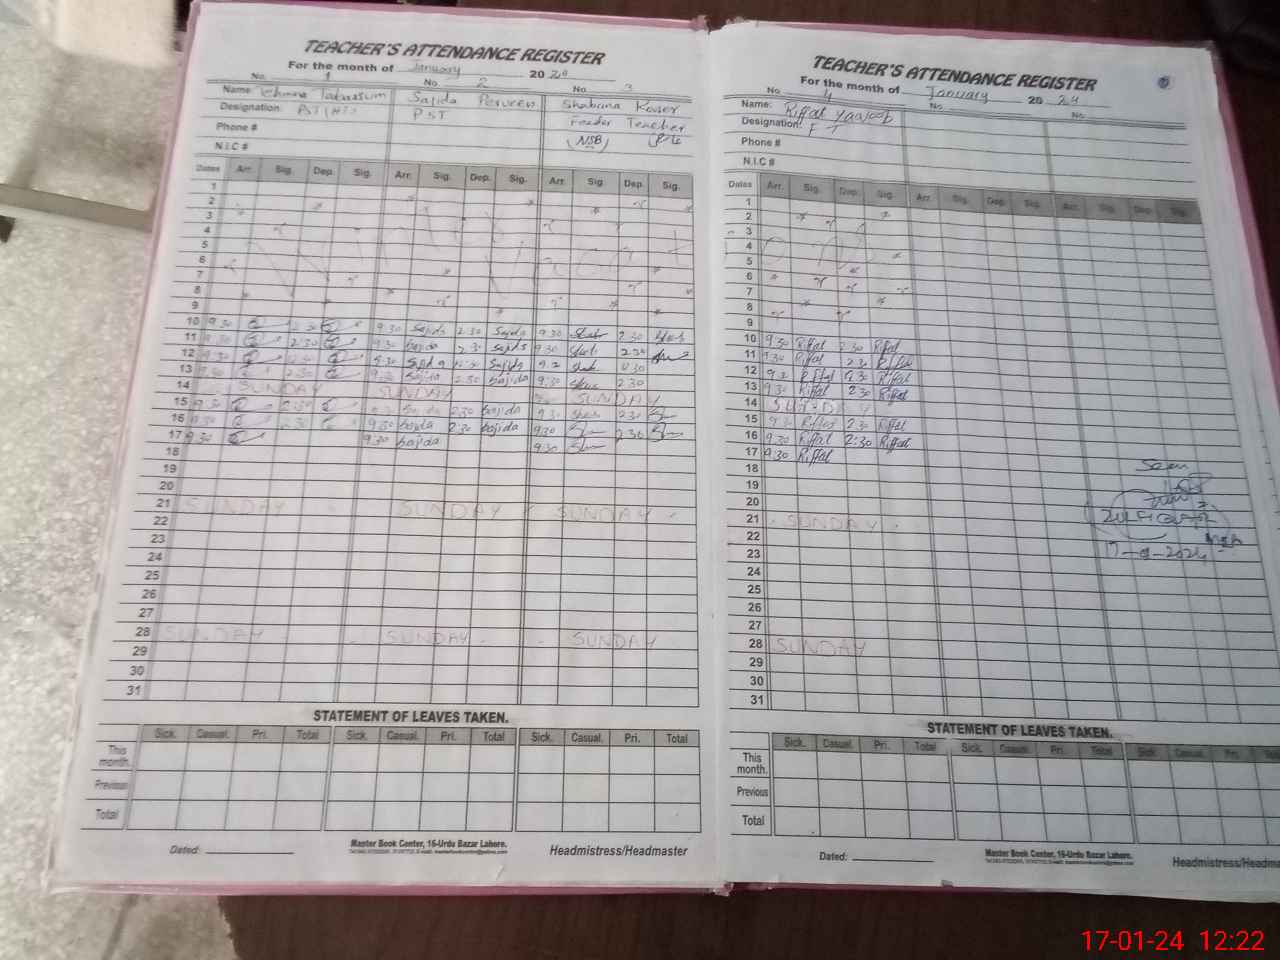 TEACHER'S ATTENDANCE REGISTER
For the month of January 20 24
No. 1 No. 2 No. 3
Name: Tabassum Sajida Perveen Shabana Kouser
Designation: PST PST Feeder Teacher
(NSB)
Phone #
N.I.C #
Dates Arr. Sig. Dep. Sig. Arr. Sig. Dep. Sig. Arr. Sig. Dep. Sig.
1
2
3
4
5
6
7
8
9
Winter Vacat
10 9.30 2.30 9.30 Sajida 2.30 Sajida 9.30 Shab 2.30
11 9.30 2:30 9.30 Sajida 2.30 Sajida 9.30 Shab 2.30
12 9.30 9.30 Sajida Sajida
13 9.30 2:30 9.30 Sajida 2.30 Sajida 9:30 2.30
14 SUNDAY SUNDAY SUNDAY
15 9.30 2:30 Sajida 2:30 Sajida 9.30 2.30
16 9.30 2:30 9.30 Sajida 2:30 Sajida 9.30 2.30
17 9.30 9.30 Sajida 9:30
18
19
20
21 SUNDAY SUNDAY SUNDAY
22
23
24
25
26
27
28 SUNDAY SUNDAY SUNDAY
29
30
31
STATEMENT OF LEAVES TAKEN.
Sick. Casual. Pri. Total Sick. Casual. Pri. Total Sick. Casual. Pri. Total
This month.
Previous
Total
Dated:
Master Book Center, 16-Urdu Bazar Lahore.
Headmistress/Headmaster
TEACHER'S ATTENDANCE REGISTER
For the month of January 20 24
No. 4 No. No.
Name: Riffat Yaqoob
Designation: F T
Phone #
N.I.C #
Dates Arr. Sig. Dep. Sig. Arr. Sig. Dep. Sig. Arr. Sig. Dep. Sig.
1
2
3
4
5
6
7
8
9
10 9.30 Riffat 2.30 Riffat
11 9.30 Riffat 2.30 Riffat
12 9.30 Riffat Riffat
13 9.30 Riffat 2:30 Riffat
14 SUNDAY
15 9.30 Riffat 2:30 Riffat
16 9.30 Riffat 2:30 Riffat
17 9.30 Riffat
18
19
20
21 SUNDAY
22
23
24
25
26
27
28 SUNDAY
29
30
31
Seen
17-01-2024
STATEMENT OF LEAVES TAKEN.
Sick. Casual. Pri. Total Sick. Casual. Pri. Total Sick. Casual. Pri.
This month.
Previous
Total
Dated:
Master Book Center, 16-Urdu Bazar Lahore.
Headmistress/Headma
17-01-24 12:22